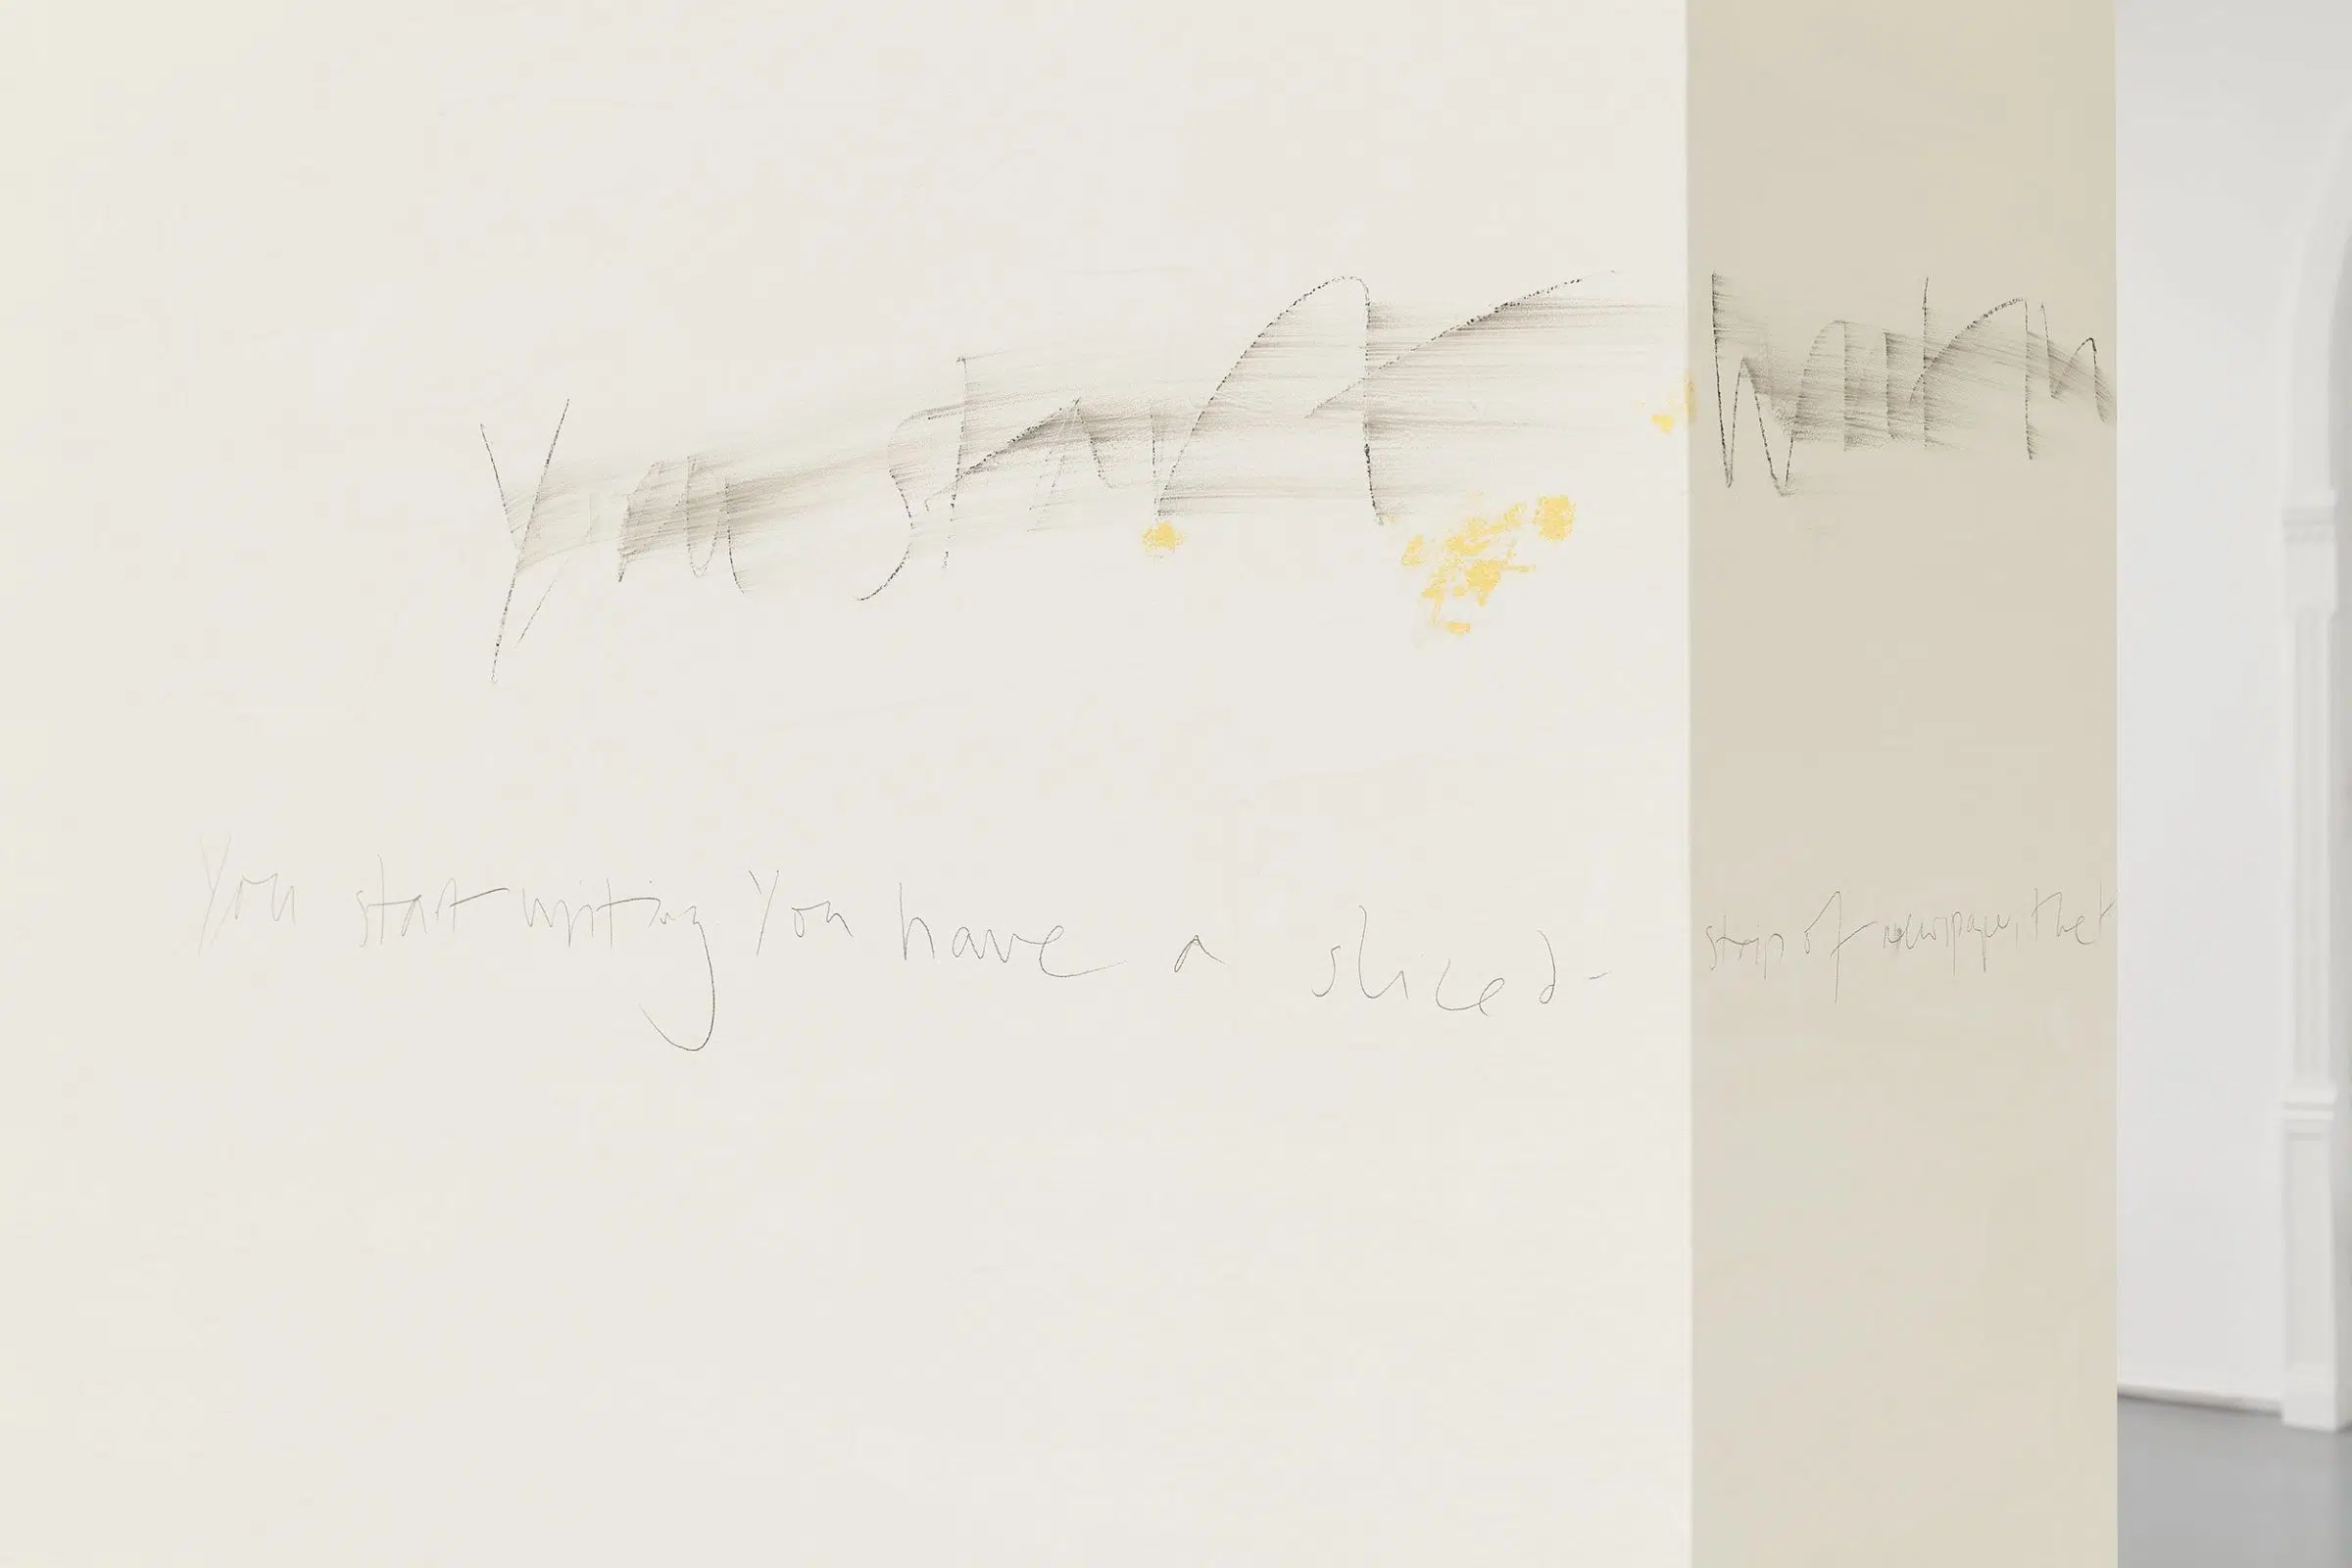 You start
You start writing You have a sliced- strip of newspaper, that